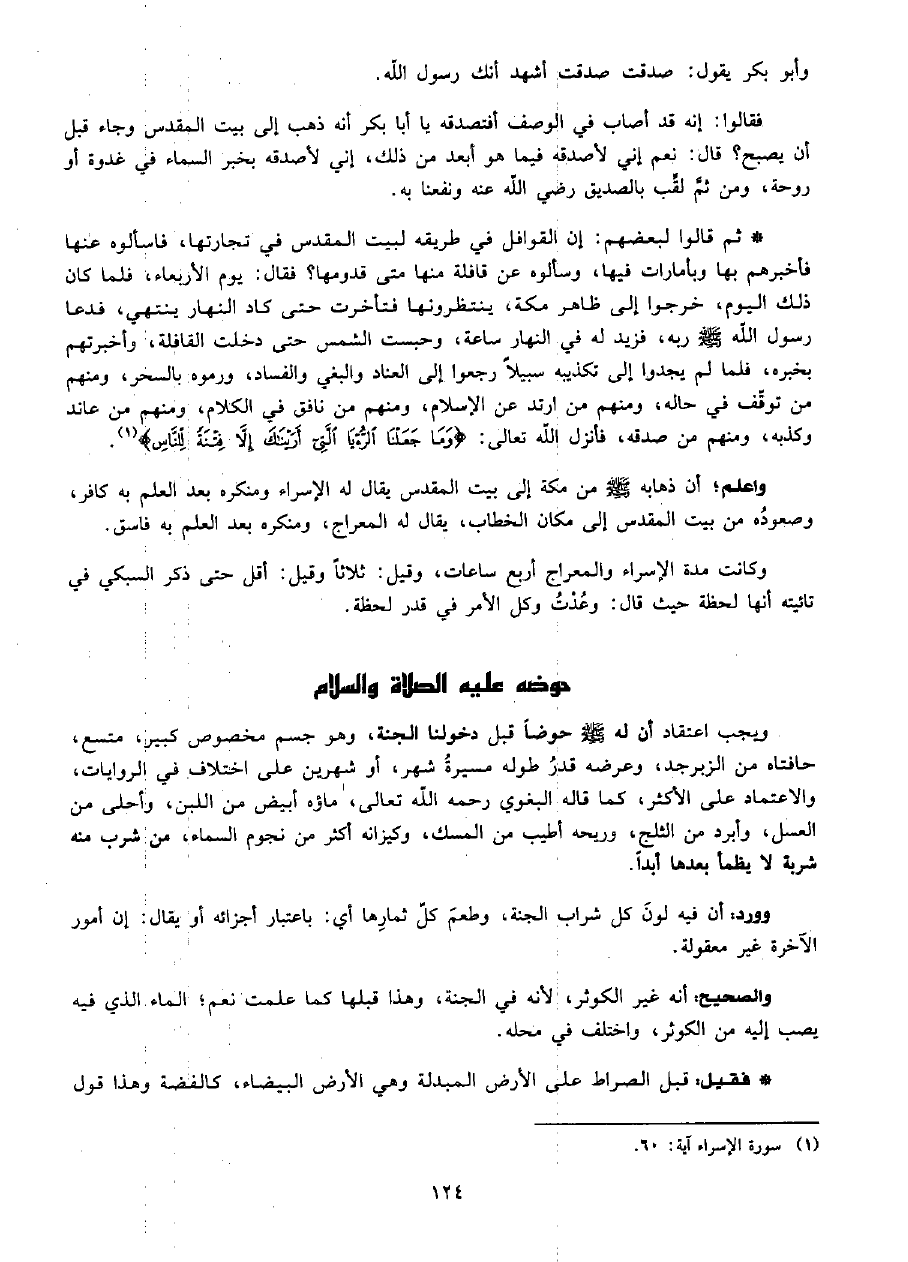 وأبو بكر يقول: صدقت صدقت أشهد أنك رسول الله.
فقالوا: إنه قد أصاب في الوصف أفتصدقه يا أبا بكر أنه ذهب إلى بيت المقدس وجاء قبل
أن يصبح؟ قال: نعم إني لأصدقه فيما هو أبعد من ذلك، إني لأصدقه بخبر السماء في غدوة أو
روحة، ومن ثمَّ لقِّب بالصديق رضي الله عنه ونفعنا به.
* ثم قالوا لبعضهم: إن القوافل في طريقه لبيت المقدس في تجارتها، فاسألوه عنها
فأخبرهم بها وبأمارات فيها، وسألوه عن قافلة منها متى قدومها؟ فقال: يوم الأربعاء، فلما كان
ذلك اليوم، خرجوا إلى ظاهر مكة، ينتظرونها فتأخرت حتى كاد النهار ينتهي، فدعا
رسول الله ﷺ ربه، فزيد له في النهار ساعة، وحبست الشمس حتى دخلت القافلة، وأخبرتهم
بخبره، فلما لم يجدوا إلى تكذيبه سبيلاً رجعوا إلى العناد والبغي والفساد، ورموه بالسحر، ومنهم
من توقّف في حاله، ومنهم من ارتد عن الإسلام، ومنهم من نافق في الكلام، ومنهم من عاند
وكذبه، ومنهم من صدقه، فأنزل الله تعالى: ﴿وَمَا جَعَلْنَا ٱلرُّءْيَا ٱلَّتِىٓ أَرَيْنَٰكَ إِلَّا فِتْنَةً لِّلنَّاسِ﴾(١).
واعلم؛ أن ذهابه ﷺ من مكة إلى بيت المقدس يقال له الإسراء ومنكره بعد العلم به كافر،
وصعودُه من بيت المقدس إلى مكان الخطاب، يقال له المعراج، ومنكره بعد العلم به فاسق.
وكانت مدة الإسراء والمعراج أربع ساعات، وقيل: ثلاثاً وقيل: أقل حتى ذكر السبكي في
تائيته أنها لحظة حيث قال: وعُدْتُ وكل الأمر في قدر لحظة.
حوضه عليه الصلاة والسلام
ويجب اعتقاد أن له ﷺ حوضاً قبل دخولنا الجنة، وهو جسم مخصوص كبير، متسع،
حافتاه من الزبرجد، وعرضه قدرُ طوله مسيرةُ شهر، أو شهرين على اختلاف في الروايات،
والاعتماد على الأكثر، كما قاله البغوي رحمه الله تعالى، ماؤه أبيض من اللبن، وأحلى من
العسل، وأبرد من الثلج، وريحه أطيب من المسك، وكيزانه أكثر من نجوم السماء، من شرب منه
شربة لا يظمأ بعدها أبداً.
وورد: أن فيه لونَ كل شراب الجنة، وطعمَ كلّ ثمارِها أي: باعتبار أجزائه أو يقال: إن أمور
الآخرة غير معقولة.
والصحيح: أنه غير الكوثر، لأنه في الجنة، وهذا قبلها كما علمت نعم؛ الماء الذي فيه
يصب إليه من الكوثر، واختلف في محله.
* فقيل: قبل الصراط على الأرض المبدلة وهي الأرض البيضاء، كالفضة وهذا قول
(١) سورة الإسراء آية: ٦٠.
١٢٤